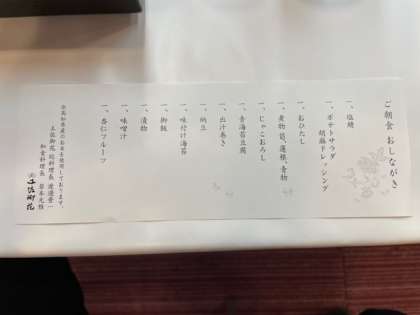 ご朝食 おしながき
一、塩鯖
一、ポテトサラダ
胡麻ドレッシング
一、おひたし
一、煮物 筍、蓮根、青物
一、じゃこおろし
一、青海苔豆腐
一、出汁巻き
一、納豆
一、味付け海苔
一、御飯
一、漬物
一、味噌汁
一、杏仁フルーツ
※高知県産のお米を使用しております。
土佐御苑 総料理長 渡邊晋一
和食料理長
土佐御苑